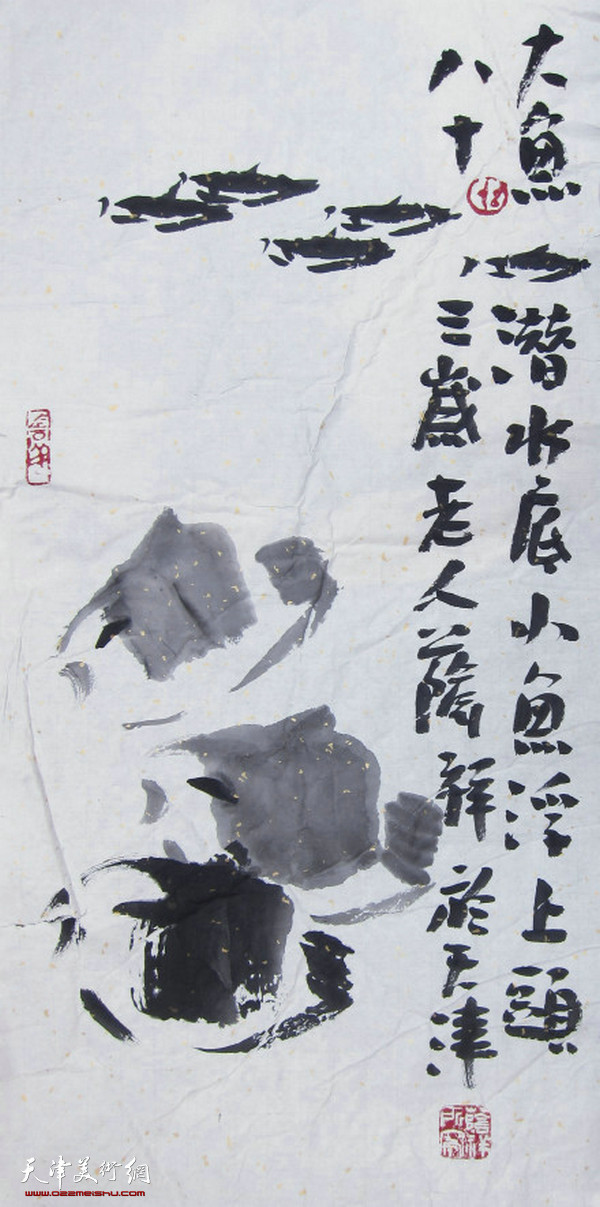 大魚潛水底小魚浮上頭
八十三歲老人蔭祥於天津
天津美術網
www.022meishu.com